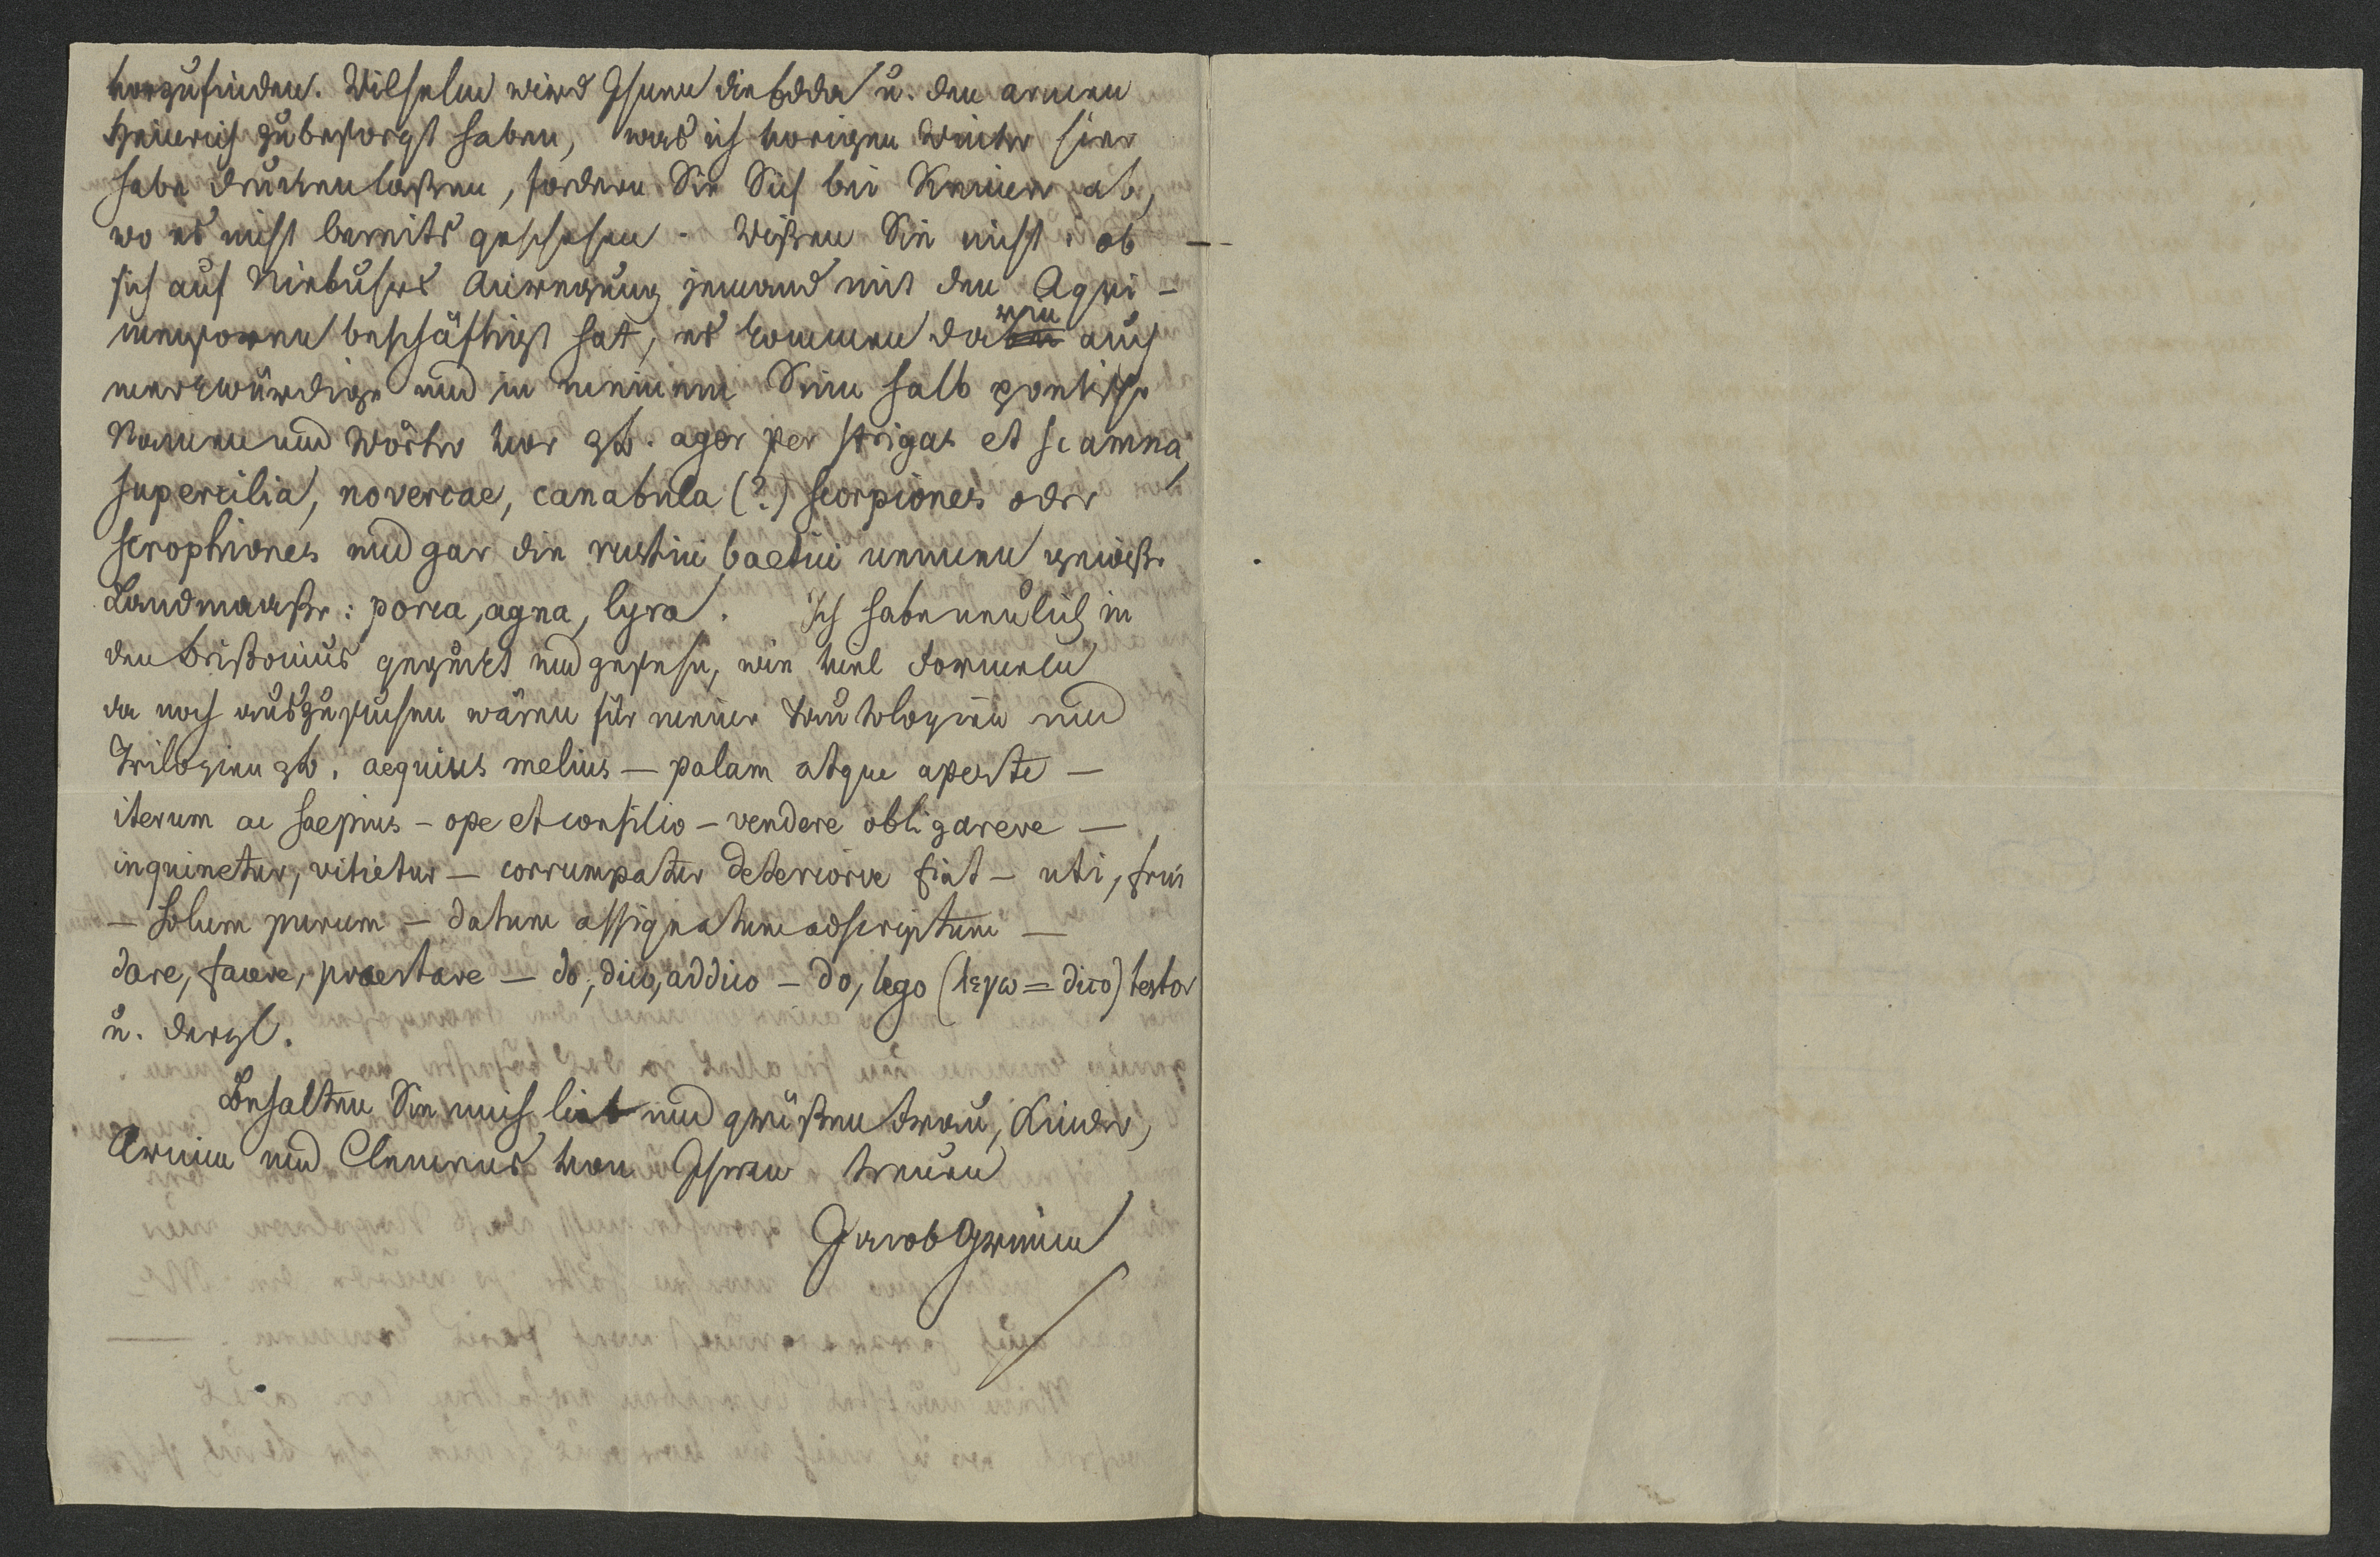 vorzufinden. Wilhelm wird Ihnen die Edda u. den armen
Heinrich zubesorgt haben, was ich vorigen Winter hier
habe drucken laßen, fordern Sie Sich bei Reimer ab,
wo es nicht bereits geschehen. Wißen Sie nicht, ob —
sich auf Niebuhrs Anregung jemand mit den Agri-
mensoren beschäftigt hat, es kommen darin auch
merkwürdige und in meinem Sinn halb poetische
Namen und Wörter vor zb. ager per strigas et scamna,
supercilia, novercae, canabula (?) scorpiones oder
scrophiones und gar die rustici baetici nennen gewiße
Landmaaße: porca, agna, lyra. Ich habe neulich in
den Brißonius geguckt und gesehn, wie viel Formeln
da noch auszusuchen wären für meine Tautologien und
Trilogien zb. aequius melius — palam atque aperte —
iterum ac saepius — ope et consilio — vendere obligareve —
inquinetur, vitietur — corrumpatur deteriorve fiat — uti, frui
— solum purum — datum assignatum adscriptum —
dare, facere, praestare — do, dico, addico — do, lego (λεγω = dico) testor
u. dergl.
Behalten Sie mich lieb und grüßen Frau, Kinder,
Arnim und Clemens von Ihrem treuen
Jacob Grimm